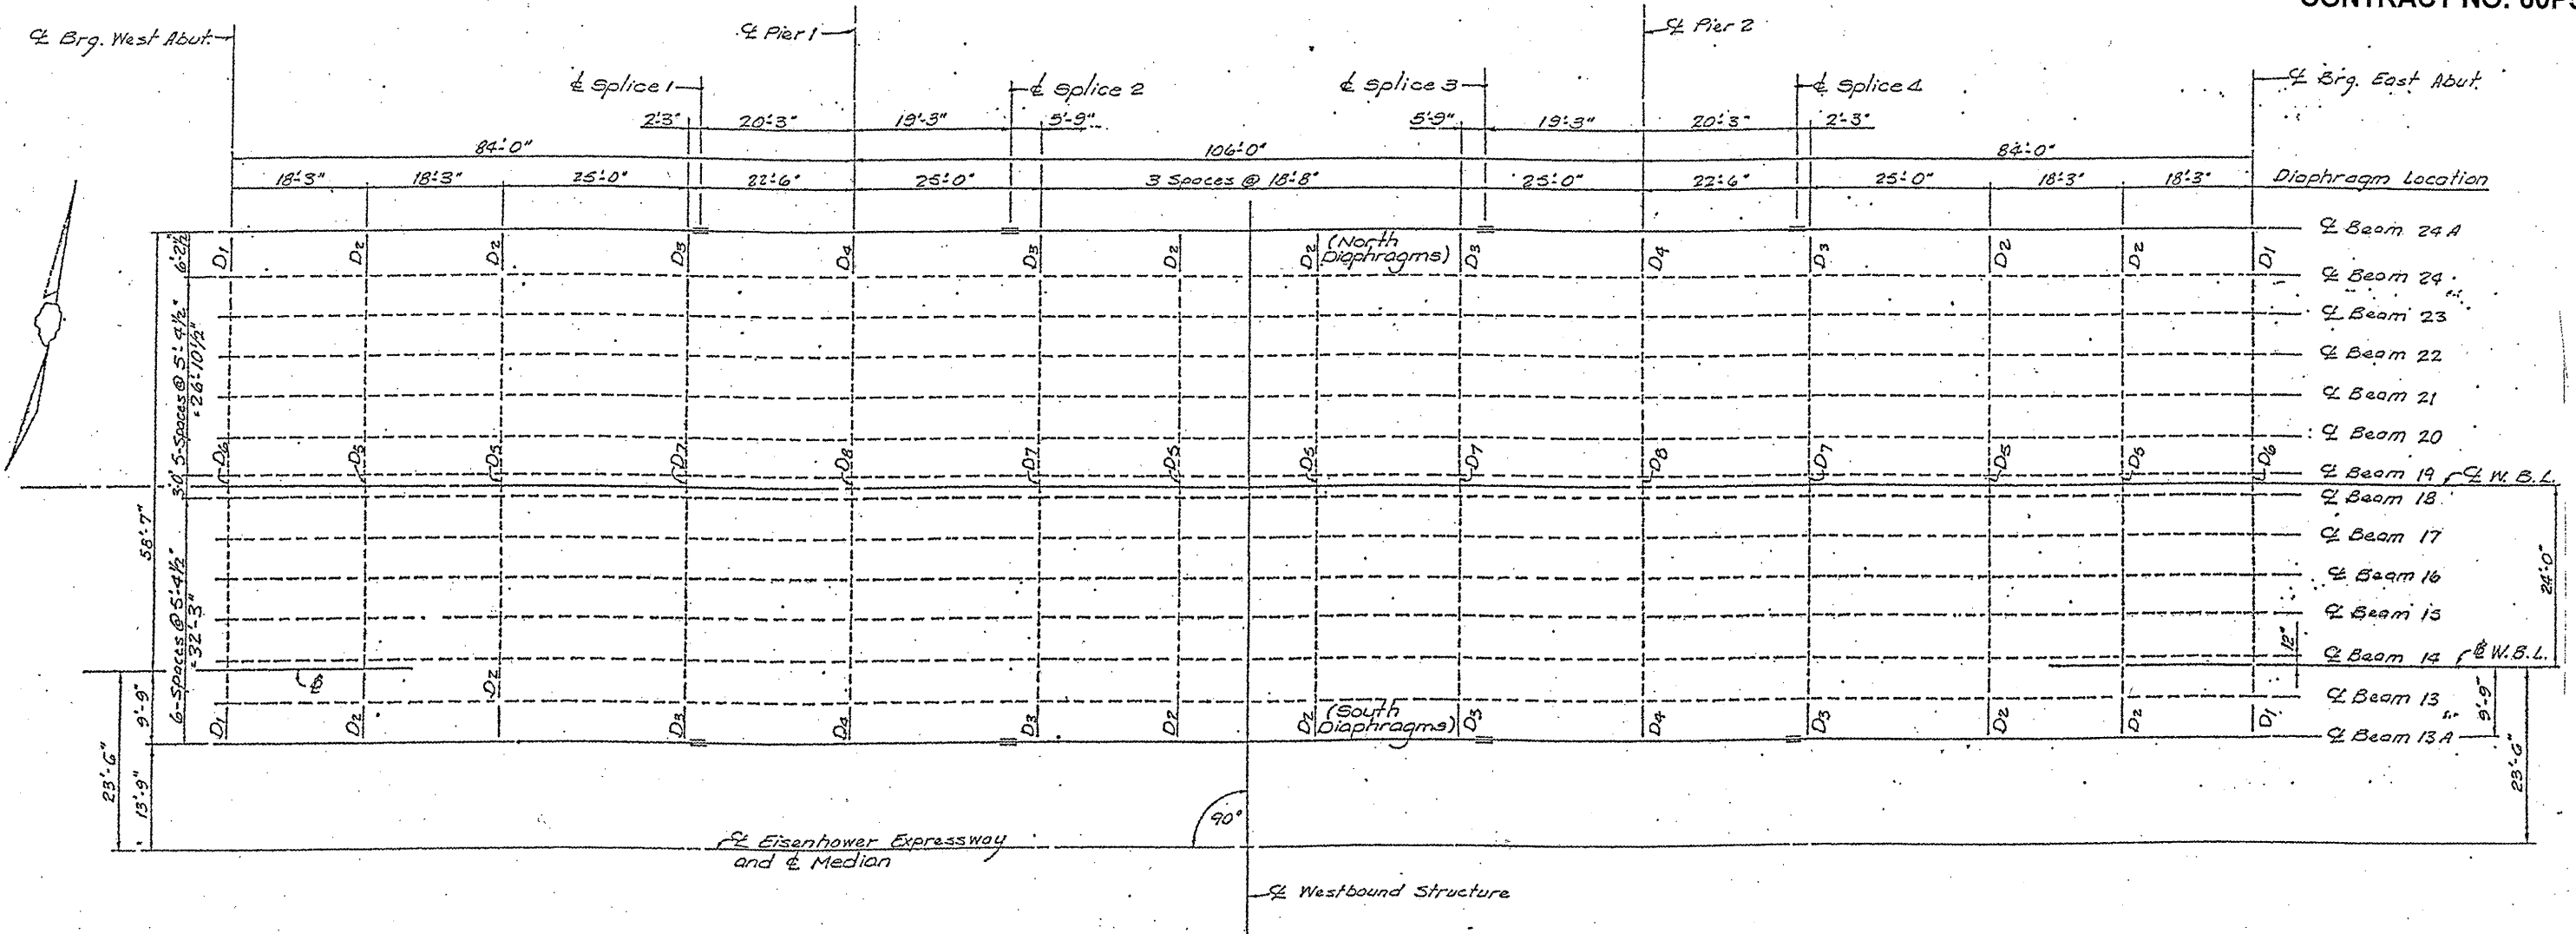 CONTRACT NO.
℄ Brg. West Abut.
℄ Pier 1
℄ Pier 2
℄ Splice 1
℄ Splice 2
℄ Splice 3
℄ Splice 4
℄ Brg. East Abut.
2'-3" 20'-3" 19'-3" 5'-9" 5'-9" 19'-3" 20'-3" 2'-3"
84'-0" 106'-0" 84'-0"
18'-3" 18'-3" 25'-0" 22'-6" 25'-0" 3 Spaces @ 18'-8" 25'-0" 22'-6" 25'-0" 18'-3" 18'-3" Diaphragm Location
℄ Beam 24A
D1 D2 D2 D3 D4 D3 D2 D2 (North Diaphragms) D3 D4 D3 D2 D2 D1
℄ Beam 24
℄ Beam 23
℄ Beam 22
℄ Beam 21
℄ Beam 20
D6 D5 D5 D7 D8 D7 D5 D5 D7 D8 D7 D5 D5 D6
℄ Beam 19 ℄ W.B.L.
℄ Beam 18
℄ Beam 17
℄ Beam 16
℄ Beam 15
℄ Beam 14 ⅊ W.B.L.
℄ Beam 13
D1 D2 D2 D3 D4 D3 D2 D2 (South Diaphragms) D3 D4 D3 D2 D2 D1
℄ Beam 13A
6'-2½"
5-Spaces @ 5'-4½"
=26'-10½"
3'-0"
6-Spaces @ 5'-4½"
=32'-3"
58'-7"
9'-9"
13'-9"
23'-6"
24'-0"
12"
9'-9"
23'-6"
90°
℄ Eisenhower Expressway
and ℄ Median
℄ Westbound Structure